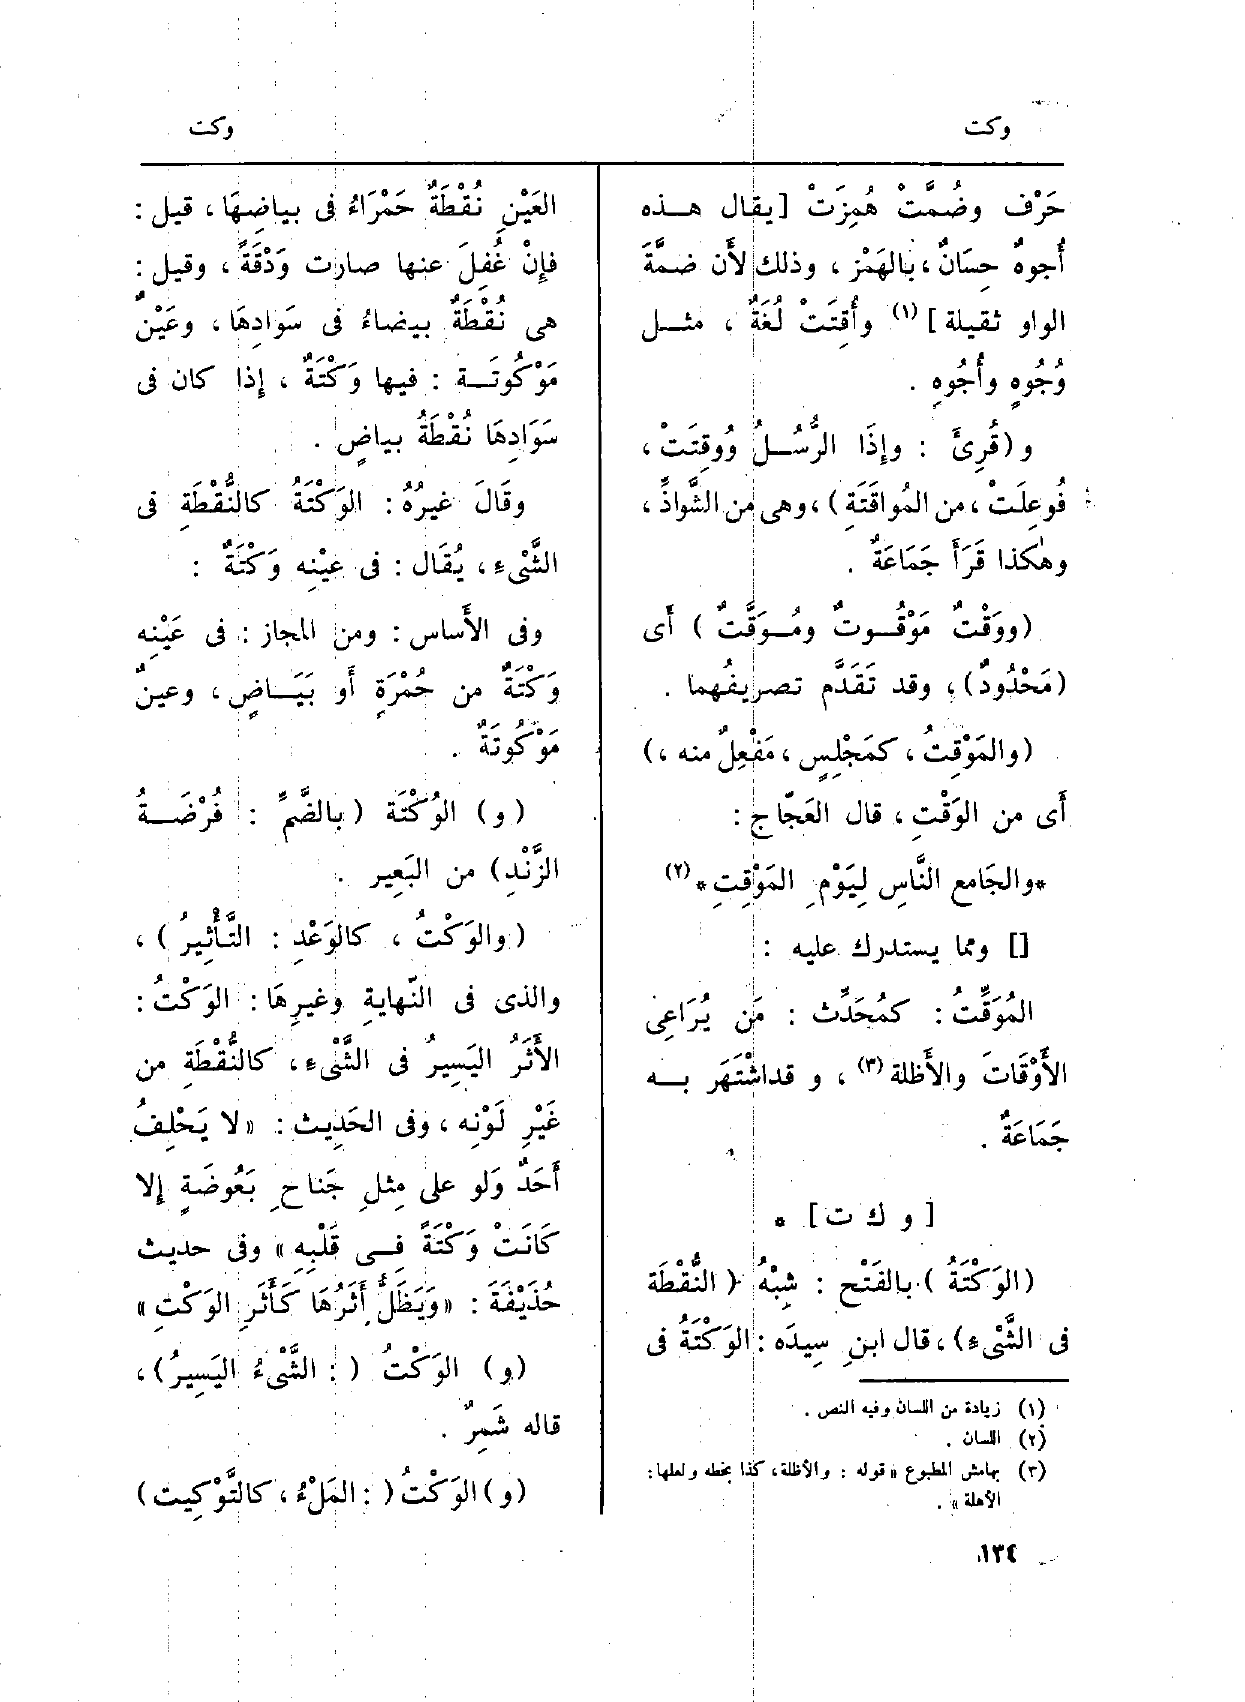 وكت
وكت
حَرْف وضُمَّتْ هُمِزَتْ [يقال هـذه
أُجوهٌ حِسَانٌ ، بالهَمْزِ ، وذلك لأَن ضمَّةَ
الواو ثقيلة ] (١) وأُقِتَتْ لُغَةٌ ، مثـل
وُجُوهٍ وأُجُوهِ .
و (قُرِئَ : وإِذَا الرُّسُـلُ وُوقِتَتْ ،
فُوعِلَتْ ، من المُواقَتَةِ ) ، وهى من الشَّواذِّ ،
وهٰكذا قَرَأَ جَمَاعَةٌ .
(ووَقْتٌ مَوْقُـوتٌ ومُـوَقَّتٌ ) أَى
(مَحْدُودٌ) ، وقد تَقَدَّم تصريفُهما .
(والمَوْقِتُ ، كمَجْلِسٍ ، مَفْعِلٌ منه ، )
أَى من الوَقْتِ ، قال العَجّاج :
*والجَامع النَّاسِ لِيَوْمِ المَوْقِتِ* (٢)
[] ومما يستدرك عليه :
المُوَقِّتُ : كمُحَدِّث : مَن يُرَاعِى
الأَوْقَاتَ والأَظلة (٣) ، و قداشْتَهَر بـه
جَمَاعَةٌ .
[ و ك ت ] *
(الوَكْتَةُ ) بالفَتْح : شِبْهُ ( النُّقْطَة
فى الشَّىْءِ) ، قال ابنِ سِيدَه : الوَكْتَةُ فى
(١) زيادة من اللسان وفيه النص .
(٢) اللسان .
(٣) بهامش المطبوع « قوله : والأظلة ، كذا بخطه ولعلها :
الأهلة » .
العَيْنِ نُقْطَةٌ حَمْرَاءُ فى بياضِهَا ، قيل :
فإِنْ غُفِلَ عنها صارت وَدْقَةً ، وقيل :
هى نُقْطَةٌ بيضاءُ فى سَوادِهَا ، وعَيْنٌ
مَوْكُوتَـة : فيها وَكْتَةٌ ، إِذا كان فى
سَوَادِهَا نُقْطَةُ بياضٍ .
وقَالَ غيرُهُ : الوَكْتَةُ كالنُّقْطَةِ فى
الشَّىْءِ ، يُقَال : فى عيْنِه وَكْتَةٌ :
وفى الأَساس : ومن المجاز : فى عَيْنِه
وَكْتَةٌ من حُمْرَةٍ أَو بَيَـاضٍ ، وعينٌ
مَوْكُوتَةٌ .
(و) الوُكْتَة (بالضَّمِّ : فُرْضَـةُ
الزَّنْدِ) من البَعِير .
(والوَكْتُ ، كالوَعْدِ : التَّأْثِيرُ ) ،
والذى فى النّهايةِ وغيرِهَا : الوَكْتُ :
الأَثَرُ اليَسِيرُ فى الشَّىْءِ ، كالنُّقْطَةِ من
غَيْرِ لَوْنِه ، وفى الحَدِيث : « لا يَحْلِفُ
أَحَدٌ وَلو على مِثلِ جَناحِ بَعُوضَةٍ إِلا
كَانَتْ وَكْتَةً فـى قَلْبِهِ » وفى حديث
حُذَيْفَةَ : « وَيَظَلُّ أَثَرُهَا كَأَثَرِ الوَكْتِ »
(و) الوَكْتُ ( : الشَّىْءُ اليَسِيرُ) ،
قاله شَمِرٌ .
(و) الوَكْتُ ( : المَلْءُ ، كالتَّوْكِيت )
١٣٤